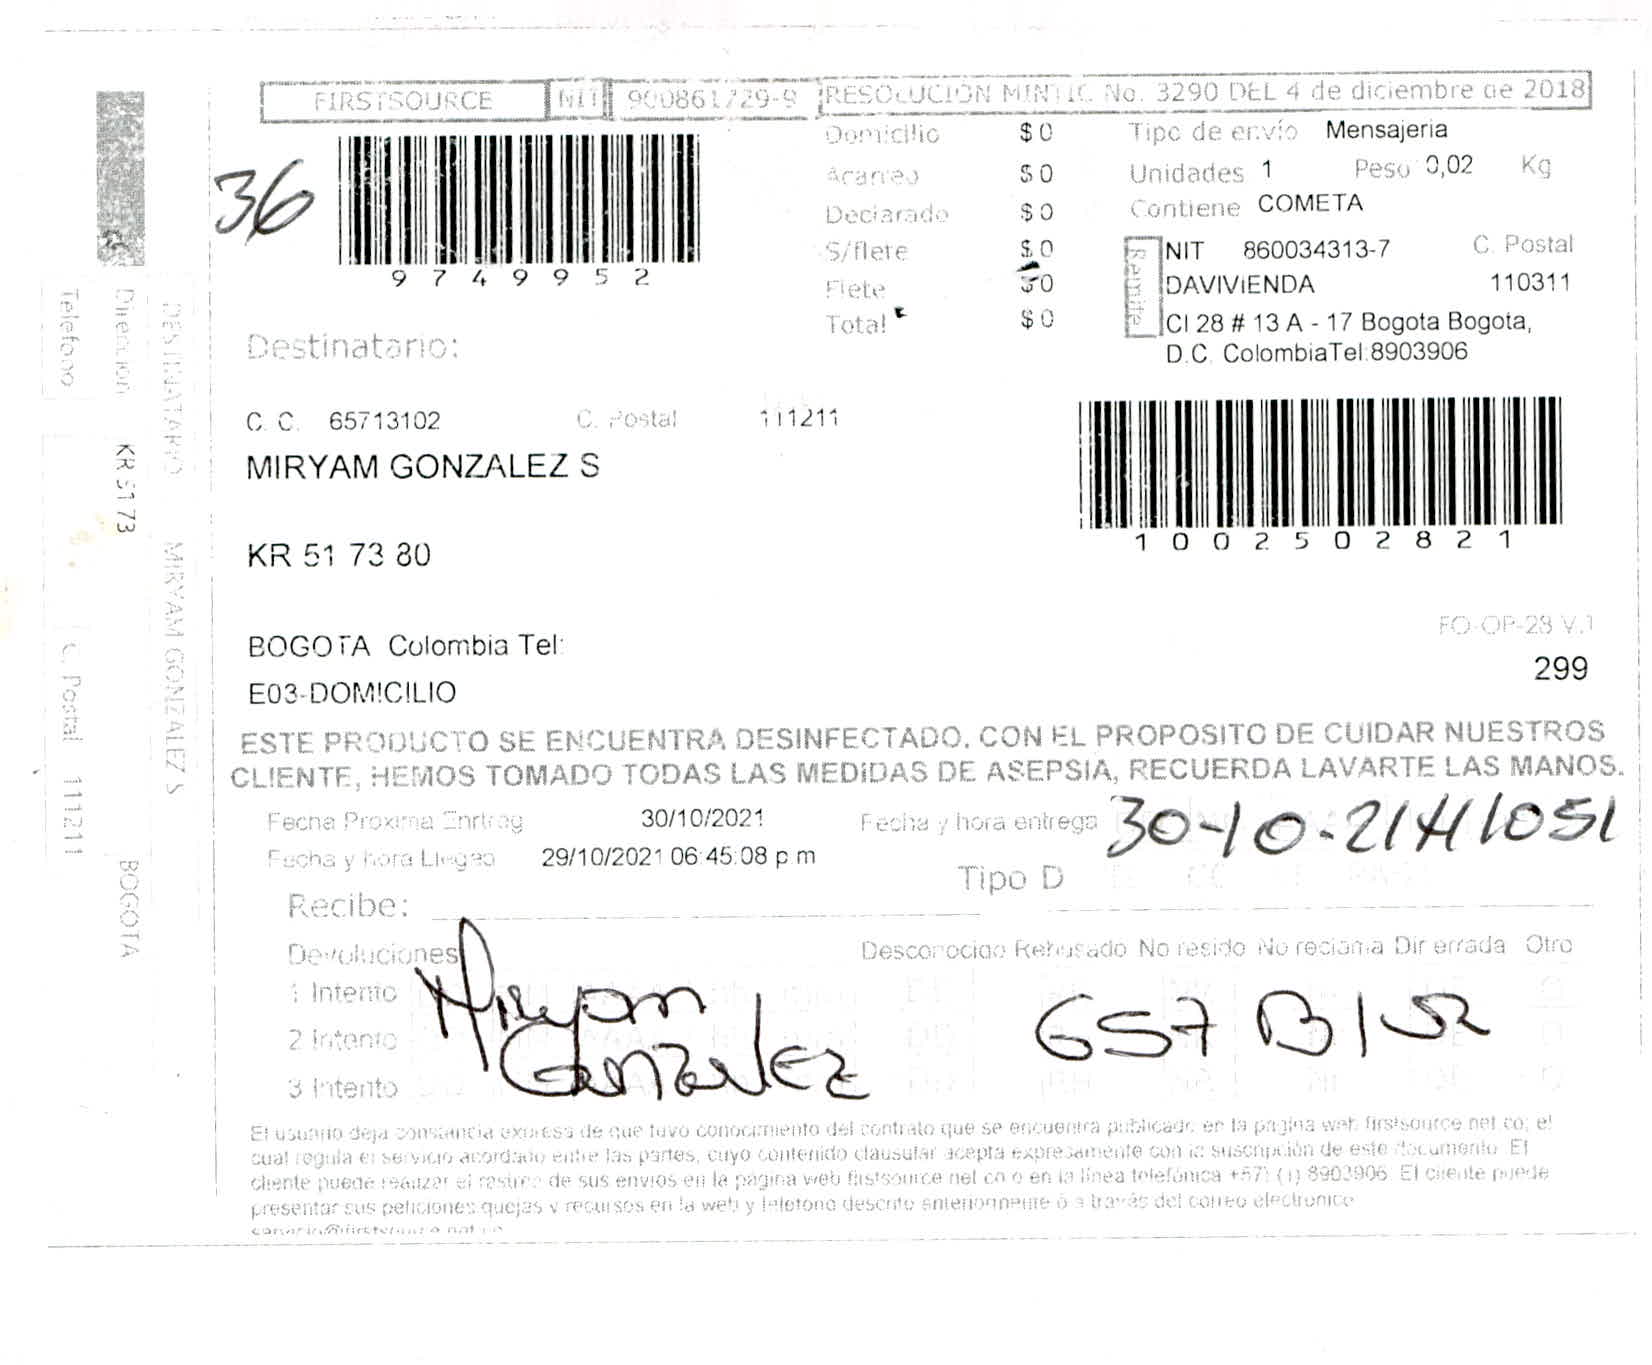 FIRSTSOURCE NIT 900861729-9 RESOLUCION MINTIC No. 3290 DEL 4 de diciembre de 2018
36
9749952
Domicilio $ 0
Acarreo $ 0
Declarado $ 0
S/flete $ 0
Flete $0
Total $ 0
Tipo de envío Mensajeria
Unidades 1 Peso 0,02 Kg
Contiene COMETA
Remite
NIT 860034313-7 C. Postal
DAVIVIENDA 110311
Cl 28 # 13 A - 17 Bogota Bogota,
D.C. ColombiaTel:8903906
Destinatario:
C. C. 65713102 C. Postal 111211
MIRYAM GONZALEZ S
KR 51 73 80
1002502821
BOGOTA Colombia Tel:
E03-DOMICILIO
FO-OP-28 V.1
299
ESTE PRODUCTO SE ENCUENTRA DESINFECTADO. CON EL PROPOSITO DE CUIDAR NUESTROS
CLIENTE, HEMOS TOMADO TODAS LAS MEDIDAS DE ASEPSIA, RECUERDA LAVARTE LAS MANOS.
Fecha Proxima Entrag 30/10/2021 Fecha y hora entrega 30-10-21 H1051
Fecha y hora Llegao 29/10/2021 06:45:08 p m
Tipo D
Recibe:
Devoluciones Desconocido Rehusado No resido No reclama Dir errada Otro
1 Intento
2 Intento
3 Intento
Miryam
Gonzalez
G57 BISR
El usuario deja constancia expresa de que tuvo conocimiento del contrato que se encuentra publicado en la pagina web firstsource net co; el
cual regula el servicio acordado entre las partes, cuyo contenido clausular acepta expresamente con la suscripción de este documento. El
cliente puede realizar el rastreo de sus envios en la pagina web firstsource net co o en la línea telefónica +57) (1) 8903906. El cliente puede
presentar sus peticiones quejas y recursos en la web y telefono descrito anteriormente ó a través del correo electronico
DESTINATARIO MIRYAM GONZALEZ S
Direccion KR 51 73 BOGOTA
Telefono C. Postal 111211